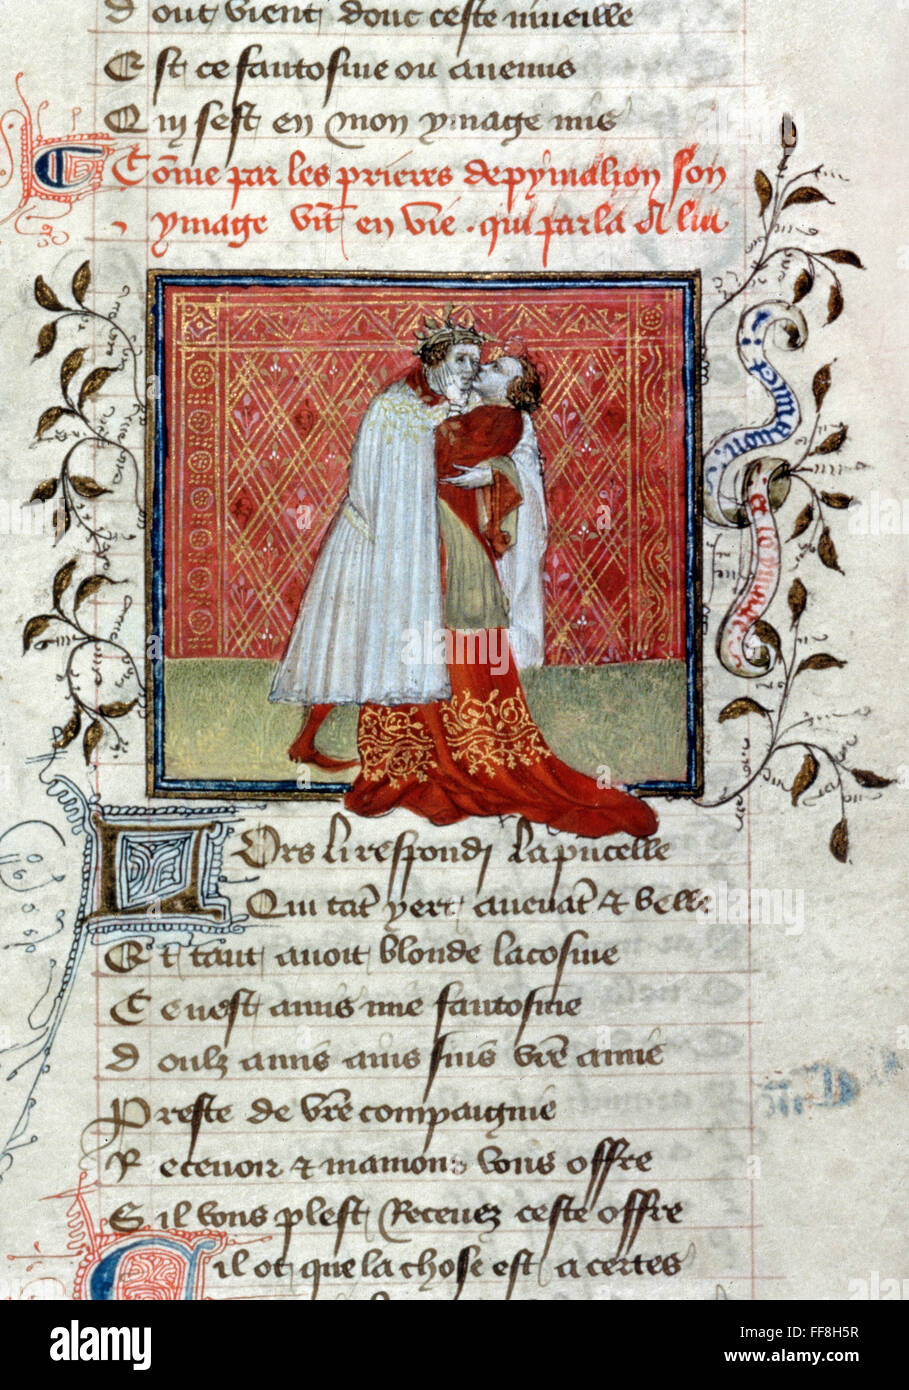 dout vient donc ceste mueille
Est ce fantosme ou anemis
Qui sest en mon ymage mis
Cōme par les prieres de pymalion son
ymage vīt en vie . qui parla a lui
Lors li respondi la pucelle
Qui tāt yert auenāt & belle
Et tant auoit blonde la cosme
Ce nest amis ne fantosme
doulz amis ains suis vr̄e amie
Preste de vr̄e compaignie
Receuoir & mamour vous offre
Sil vous plest Receuez ceste offre
Cil ot que la chose est acertes
alamy
Image ID: FF8H5R
www.alamy.com